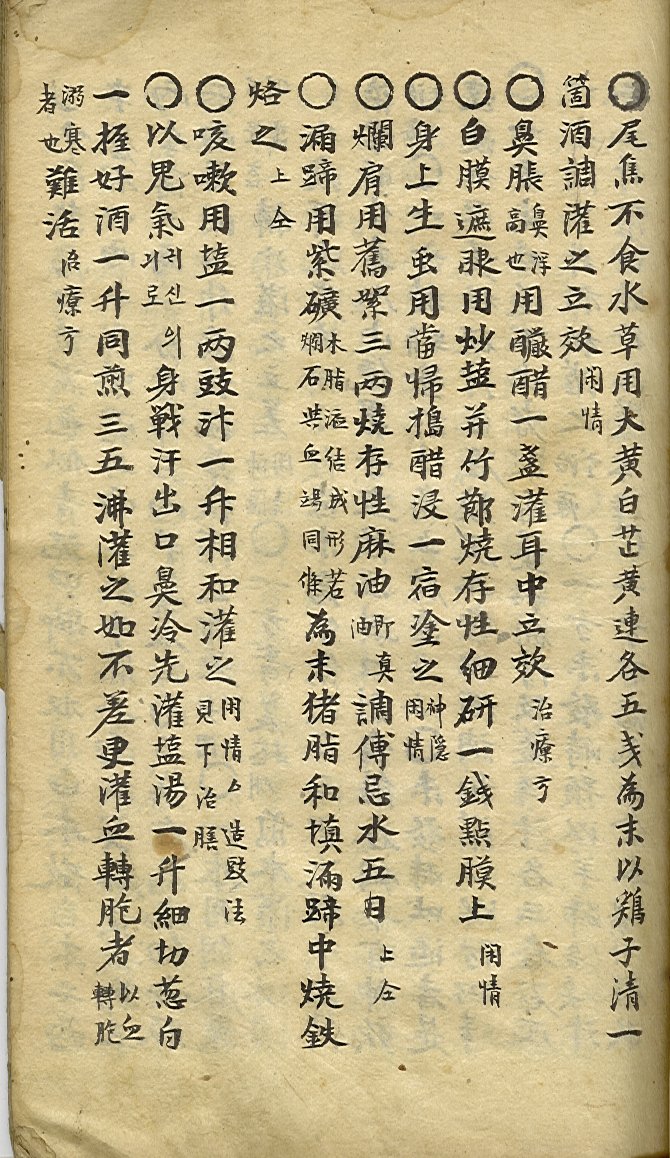 ○尾焦不食水草用大黃白芷黃連各五戔為末以鷄子清一
箇酒調灌之立效 閑情
○鼻脹 鼻浮高也 用釅醋一盞灌耳中立效 治療方
○白膜遮眼用炒塩并竹節燒存性細研一錢點膜上 閑情
○身上生虫用當帰搗醋浸一宿塗之 神隱閑情
○爛肩用舊絮三兩燒存性麻油 即真油 調傅忌水五日 上仝
○漏蹄用紫礦 木脂液結成形若爛石 同條 為末猪脂和填漏蹄中燒鉄
烙之 上仝
○咳嗽用塩一两豉汁一升相和灌之 閑情 造豉法見下治膳
○以鬼氣 귀신의 긔로 身戰汗出口鼻冷先灌塩湯一升細切葱白
一握好酒一升同煎三五沸灌之如不差更灌血轉胞者 以血轉胞
溺寒者也 難活 治療方